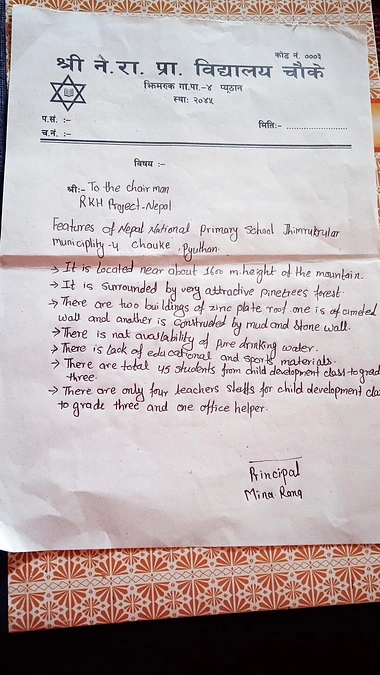 कोड नं. ०००३
श्री ने.रा. प्रा. विद्यालय चौके
झिमरुक गा.पा.-४ प्यूठान
स्था: २०४५
प.सं. :-
मिति:- ........................
च.नं. :-
विषय :-
श्री:- To the chairman
RKH Project-Nepal
Features of Nepal National Primary School Jhimrukrular
municiplity-4 Chauke, Pyuthan.
→ It is located near about 1600 m.height of the mountain.
→ It is surrounded by very attractive pinetrees forest.
→ There are two buildings of zinc plate roof.one is of cimeted
wall and another is constructed by mud and stone wall.
→ There is not availability of pure drinking water.
→ There is lack of educational and sports materials.
→ There are total 45 students from child development class to grad
three.
→ There are only four teachers staffs for child development clas
to grade three and one office helper.
Principal
Mina Rana